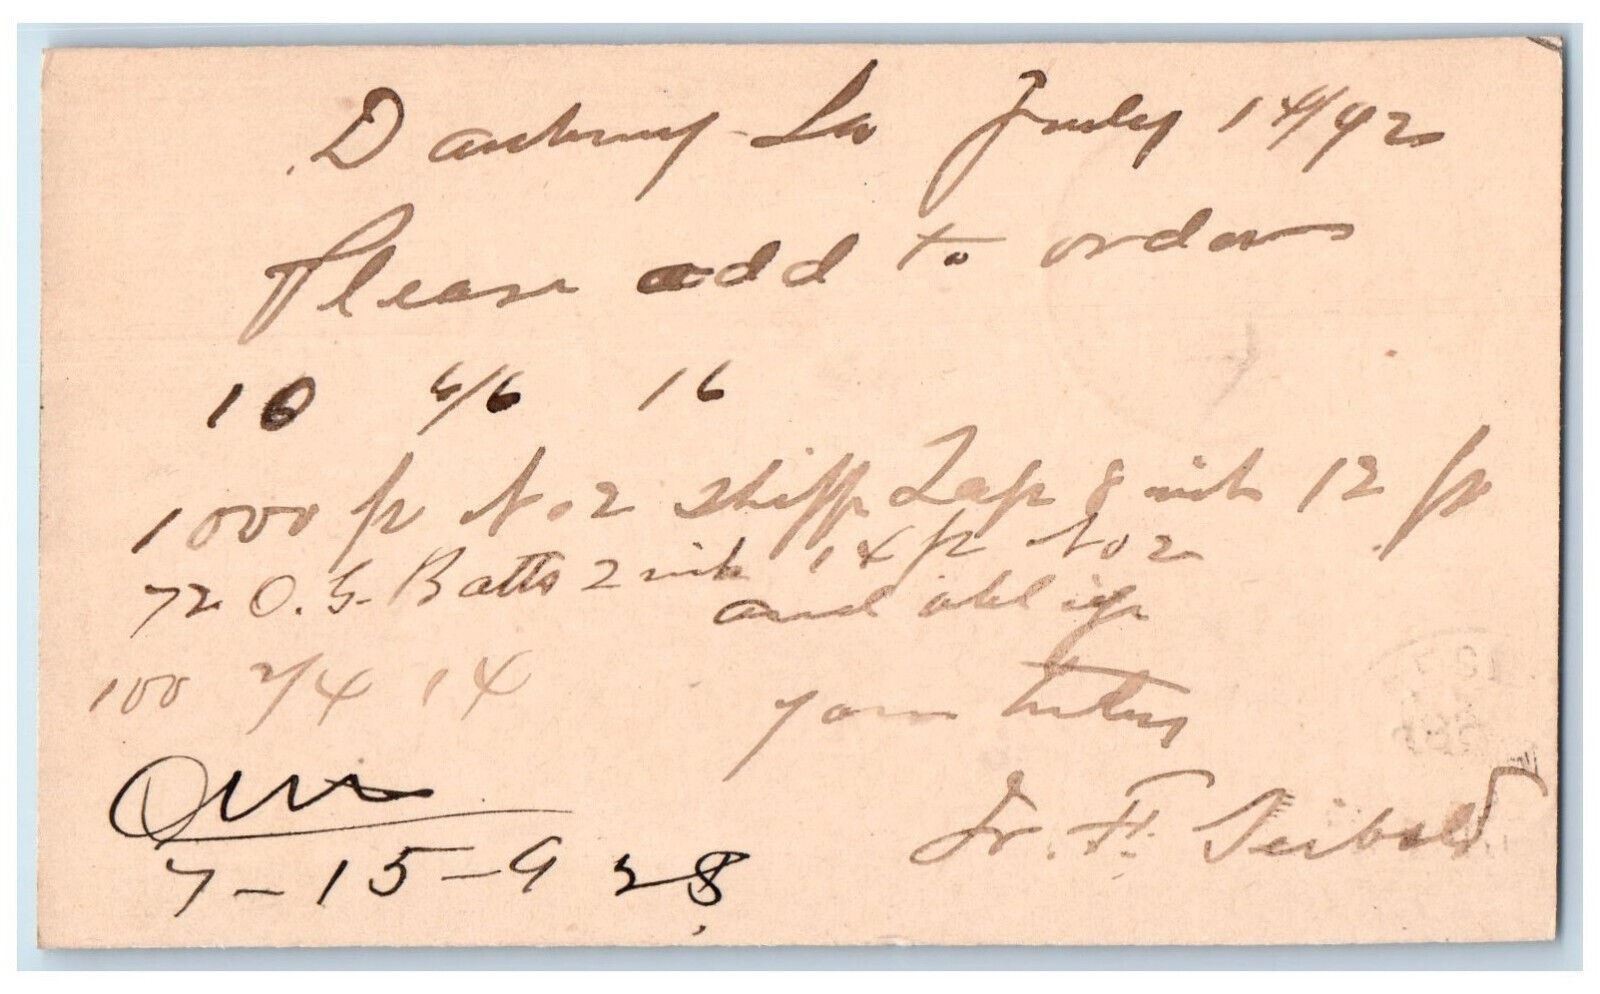 Danbury Ia July 14/92
Please add to orders
10 6/6 16
1000 ft No 2 Shipp Lap 8 inch 12 ft
72 O.G. Batts 2 inch 14 ft No 2
and oblige
100 2/4 14
Your Truly
F. Seibold
7-15-9 2 8